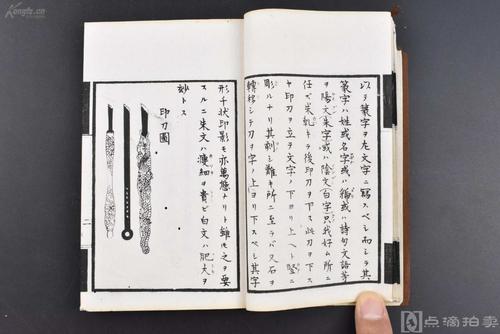 以テ篆字ヲ左文字ニ寫スベシ而シテ其
篆字ハ姓或名字或ハ編或ハ詩句文語等
ヲ陽文朱字或ハ陰文白字只我好ム所ニ
任ズ朱乾キテ後印刀ヲ下ス此刀ヲ下ス
ヤ印刀ヲ立テ文字ノ下ヨリ上ヘト堅ニ
彫ルナリ其刺シ難キ所ニ至ラバ又石ヲ
轉移シテ刀ヲ字ノ上ヨリ下スベシ其字
形千状印影モ亦萬態ナリト雖ル之ヲ要
スルニ朱文ハ瘦細ヲ貴ビ白文ハ肥大ヲ
妙トス
印刀圖
Kongfz.cn
点滴拍卖